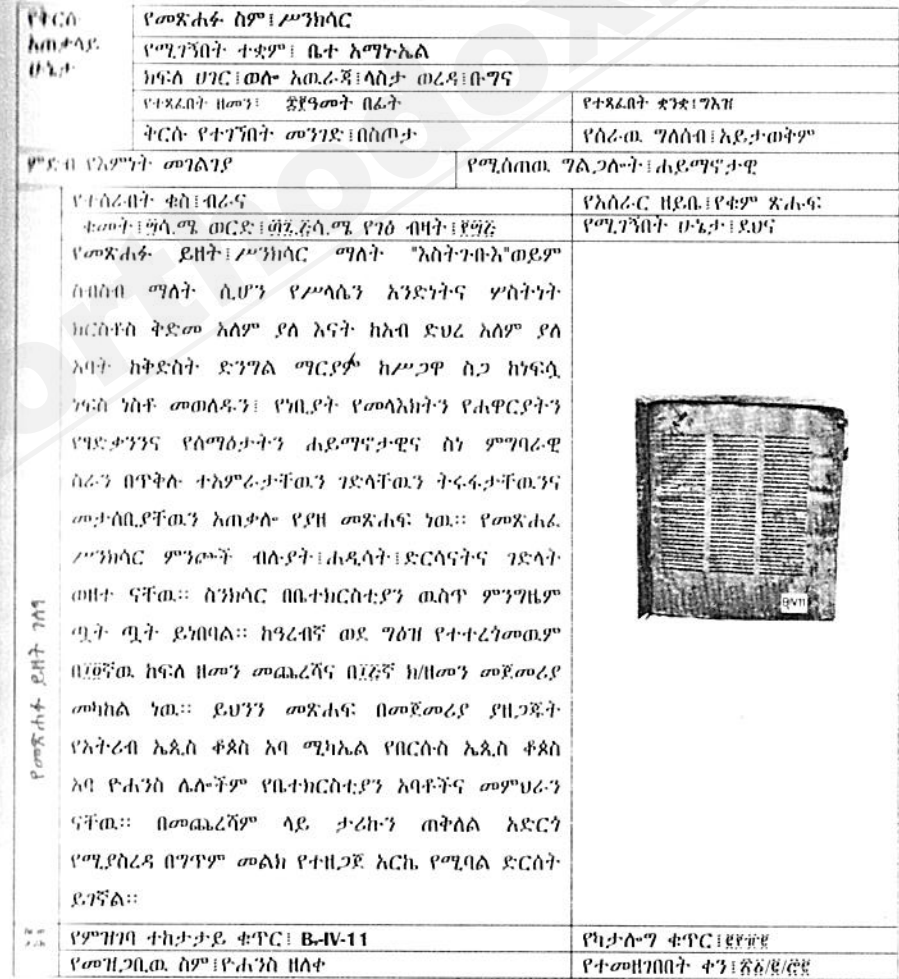 የቅርሱ
አጠቃላይ
ሁኔታ
የመጽሐፉ ስም፤ሥንክሳር
የሚገኝበት ተቋም፤ ቤተ አማኑኤል
ክፍለ ሀገር፤ወሎ አዉራጃ፤ላስታ ወረዳ፤ቡግና
የተጻፈበት ዘመን፤ ፭፻ዓመት በፊት
የተጻፈበት ቋንቋ፤ግእዝ
ቅርሱ የተገኘበት መንገድ፤በስጦታ
የሰራዉ ግለሰብ፤አይታወቅም
ምድብ የእምነት መገልገያ
የሚሰጠዉ ግልጋሎት፤ሐይማኖታዊ
የተሰራበት ቁስ፤ብራና
የአሰራር ዘይቤ፤የቁም ጽሑፍ
ቁመት፤ ሳ.ሜ ወርድ፤ ሳ.ሜ የገፅ ብዛት፤
የሚገኝበት ሁኔታ፤ደህና
የመጽሐፉ ይዘት፤ሥንክሳር ማለት "እስትጉቡእ"ወይም
ስብስብ ማለት ሲሆን የሥላሴን አንድነትና ሦስትነት
ክርስቶስ ቅድመ አለም ያለ እናት ከአብ ድህረ አለም ያለ
አባት ከቅድስት ድንግል ማርያም ከሥጋዋ ስጋ ከነፍሷ
ነፍስ ነስቶ መወለዱን፤ የነቢያት የመላእክትን የሐዋርያትን
የፃድቃንንና የሰማዕታትን ሐይማኖታዊና ስነ ምግባራዊ
ስራን በጥቅሉ ተአምራታቸዉን ገድላቸዉን ትሩፋታቸዉንና
መታሰቢያቸዉን አጠቃሎ የያዘ መጽሐፍ ነዉ። የመጽሐፈ
ሥንክሳር ምንጮች ብሉያት፤ሐዲሳት፤ድርሳናትና ገድላት
ወዘተ ናቸዉ። ስንክሳር በቤተክርስቲያን ዉስጥ ምንግዜም
ጧት ጧት ይነበባል። ከዓረብኛ ወደ ግዕዝ የተተረጎመዉም
በ፲፬ኛዉ ክፍለ ዘመን መጨረሻና በ፲፭ኛ ክ/ዘመን መጀመሪያ
መካከል ነዉ። ይህንን መጽሐፍ በመጀመሪያ ያዘጋጁት
የአትሪብ ኤጲስ ቆጶስ አባ ሚካኤል የበርሱስ ኤጲስ ቆጶስ
አባ ዮሐንስ ሌሎችም የቤተክርስቲያን አባቶችና መምህራን
ናቸዉ። በመጨረሻም ላይ ታሪኩን ጠቅለል አድርጎ
የሚያስረዳ በግጥም መልክ የተዘጋጀ አርኬ የሚባል ድርሰት
ይገኛል።
የመጽሐፉ ይዘት ገለፃ
የምዝገባ ተከታታይ ቁጥር፤ B-IV-11
የካታሎግ ቁጥር፤
የመዝጋቢዉ ስም፤ዮሐንስ ዘለቀ
የተመዘገበበት ቀን፤
orthodox